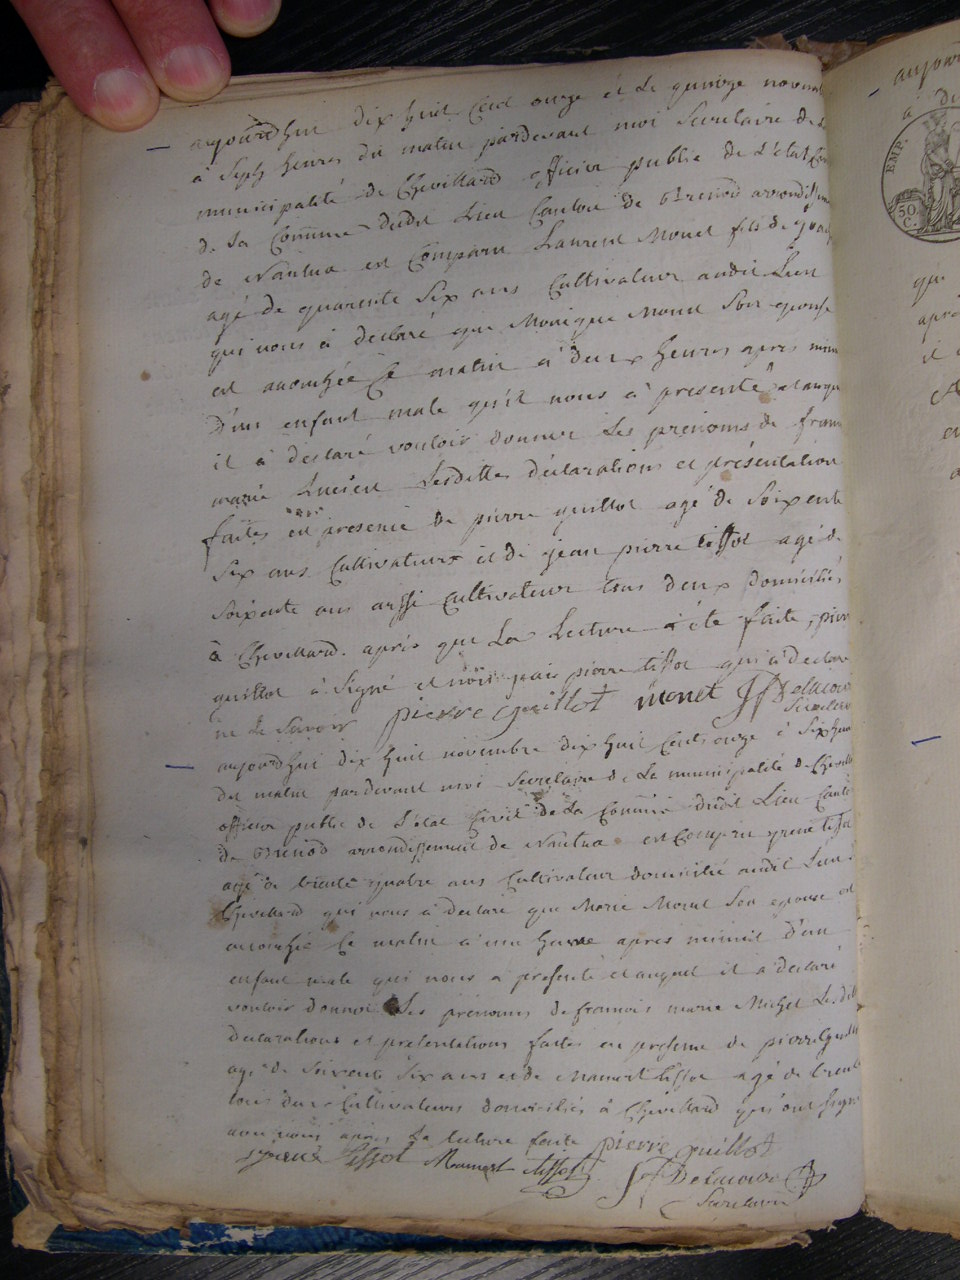 aujourdhui dix huit Cent onze et Le quinze novem
à Sept heures du matin pardevant moi Secretaire de
municipalité de Chevillard officier public de L'état Civ
de Sa Commune dudit Lieu Canton de Brenod arrondissem
de Nantua est Comparu Laurent Monet fils de
agé de quarente Six ans Cultivateur audit Lieu
qui nous à declaré que Monique Monet Son epouse
est accouchée Ce matin à deux heures apres minu
d'un enfant male qu'il nous à presenté et auque
il à declaré vouloir donner Les prenoms de fran
marie Lucien Lesdittes déclarations et présentation
faites en presence de pierre guillot agé de Soixente
Six ans Cultivateur et de jean pierre tissot agé de
Soixente ans aussi Cultivateur tous deux Domiciliés
à Chevillard. après que La Lecture à été faite, pierr
guillot à Signé et non jean pierre tissot qui à declaré
ne Le Savoir pierre guillot monet
Secretaire
aujourdhui dix huit novembre dix huit Cents onze à Six heur
du matin pardevant moi Secretaire de La municipalité de Chevill
officier public de L'état Civil de La Commune dudit Lieu Canto
de Brenod arrondissement de Nantua est Comparu pierre tissot
agé de trente quatre ans Cultivateur domicilié audit Lieu
Chevillard qui nous à declaré que Marie Monet Son epouse est
accouchée Ce matin à une heure apres minuit d'un
enfant male qui nous a presenté et auquel il à declaré
vouloir donner Les prenoms de francois marie Michel Lesditt
declarations et presentations faites en presence de pierre guillot
agé de Soixente Six ans et de Mamert tissot agé de trente
tous deux Cultivateurs domiciliés à Chevillard qui ont Signé
avec nous après La lecture faite pierre guillot
pierre tissot Mamert tissot
Secretaire
EMP.
50 C.